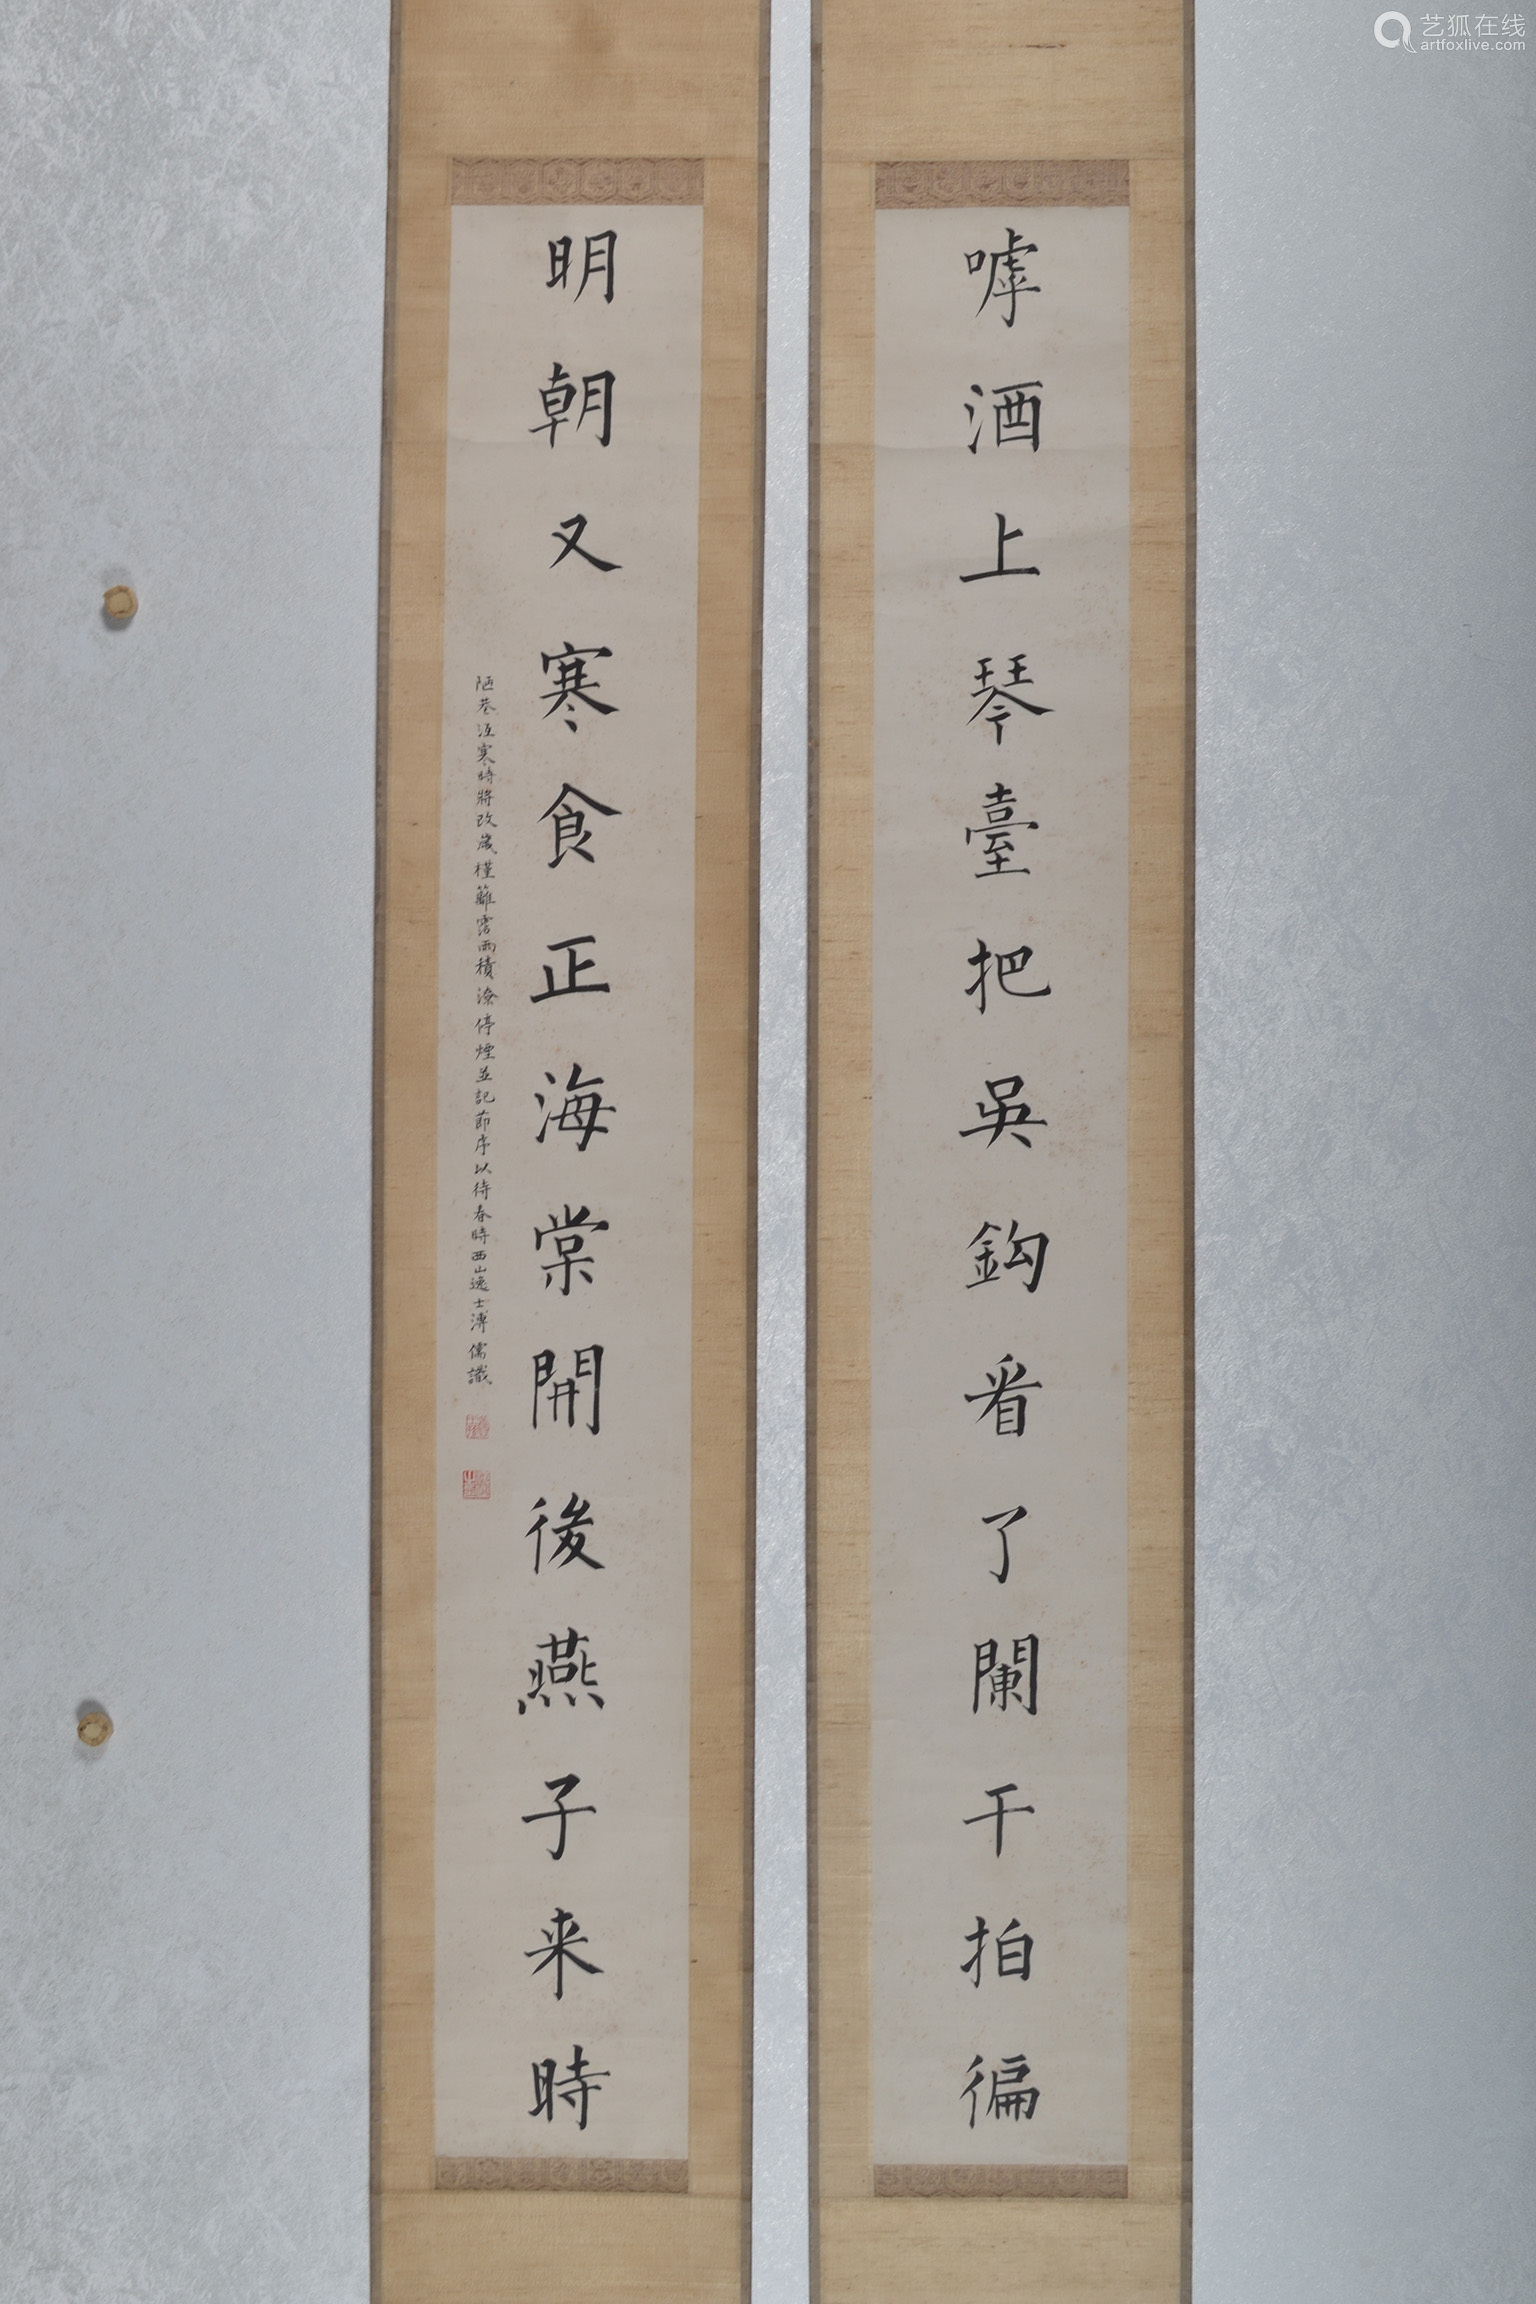 嘑酒上琴臺把吳鈎看了闌干拍徧
明朝又寒食正海棠開後燕子来時
陋巷沍寒時將改歲槿籬霑雨積潦停煙並記節序以待春時西山逸士溥儒識
艺狐在线
artfoxlive.com